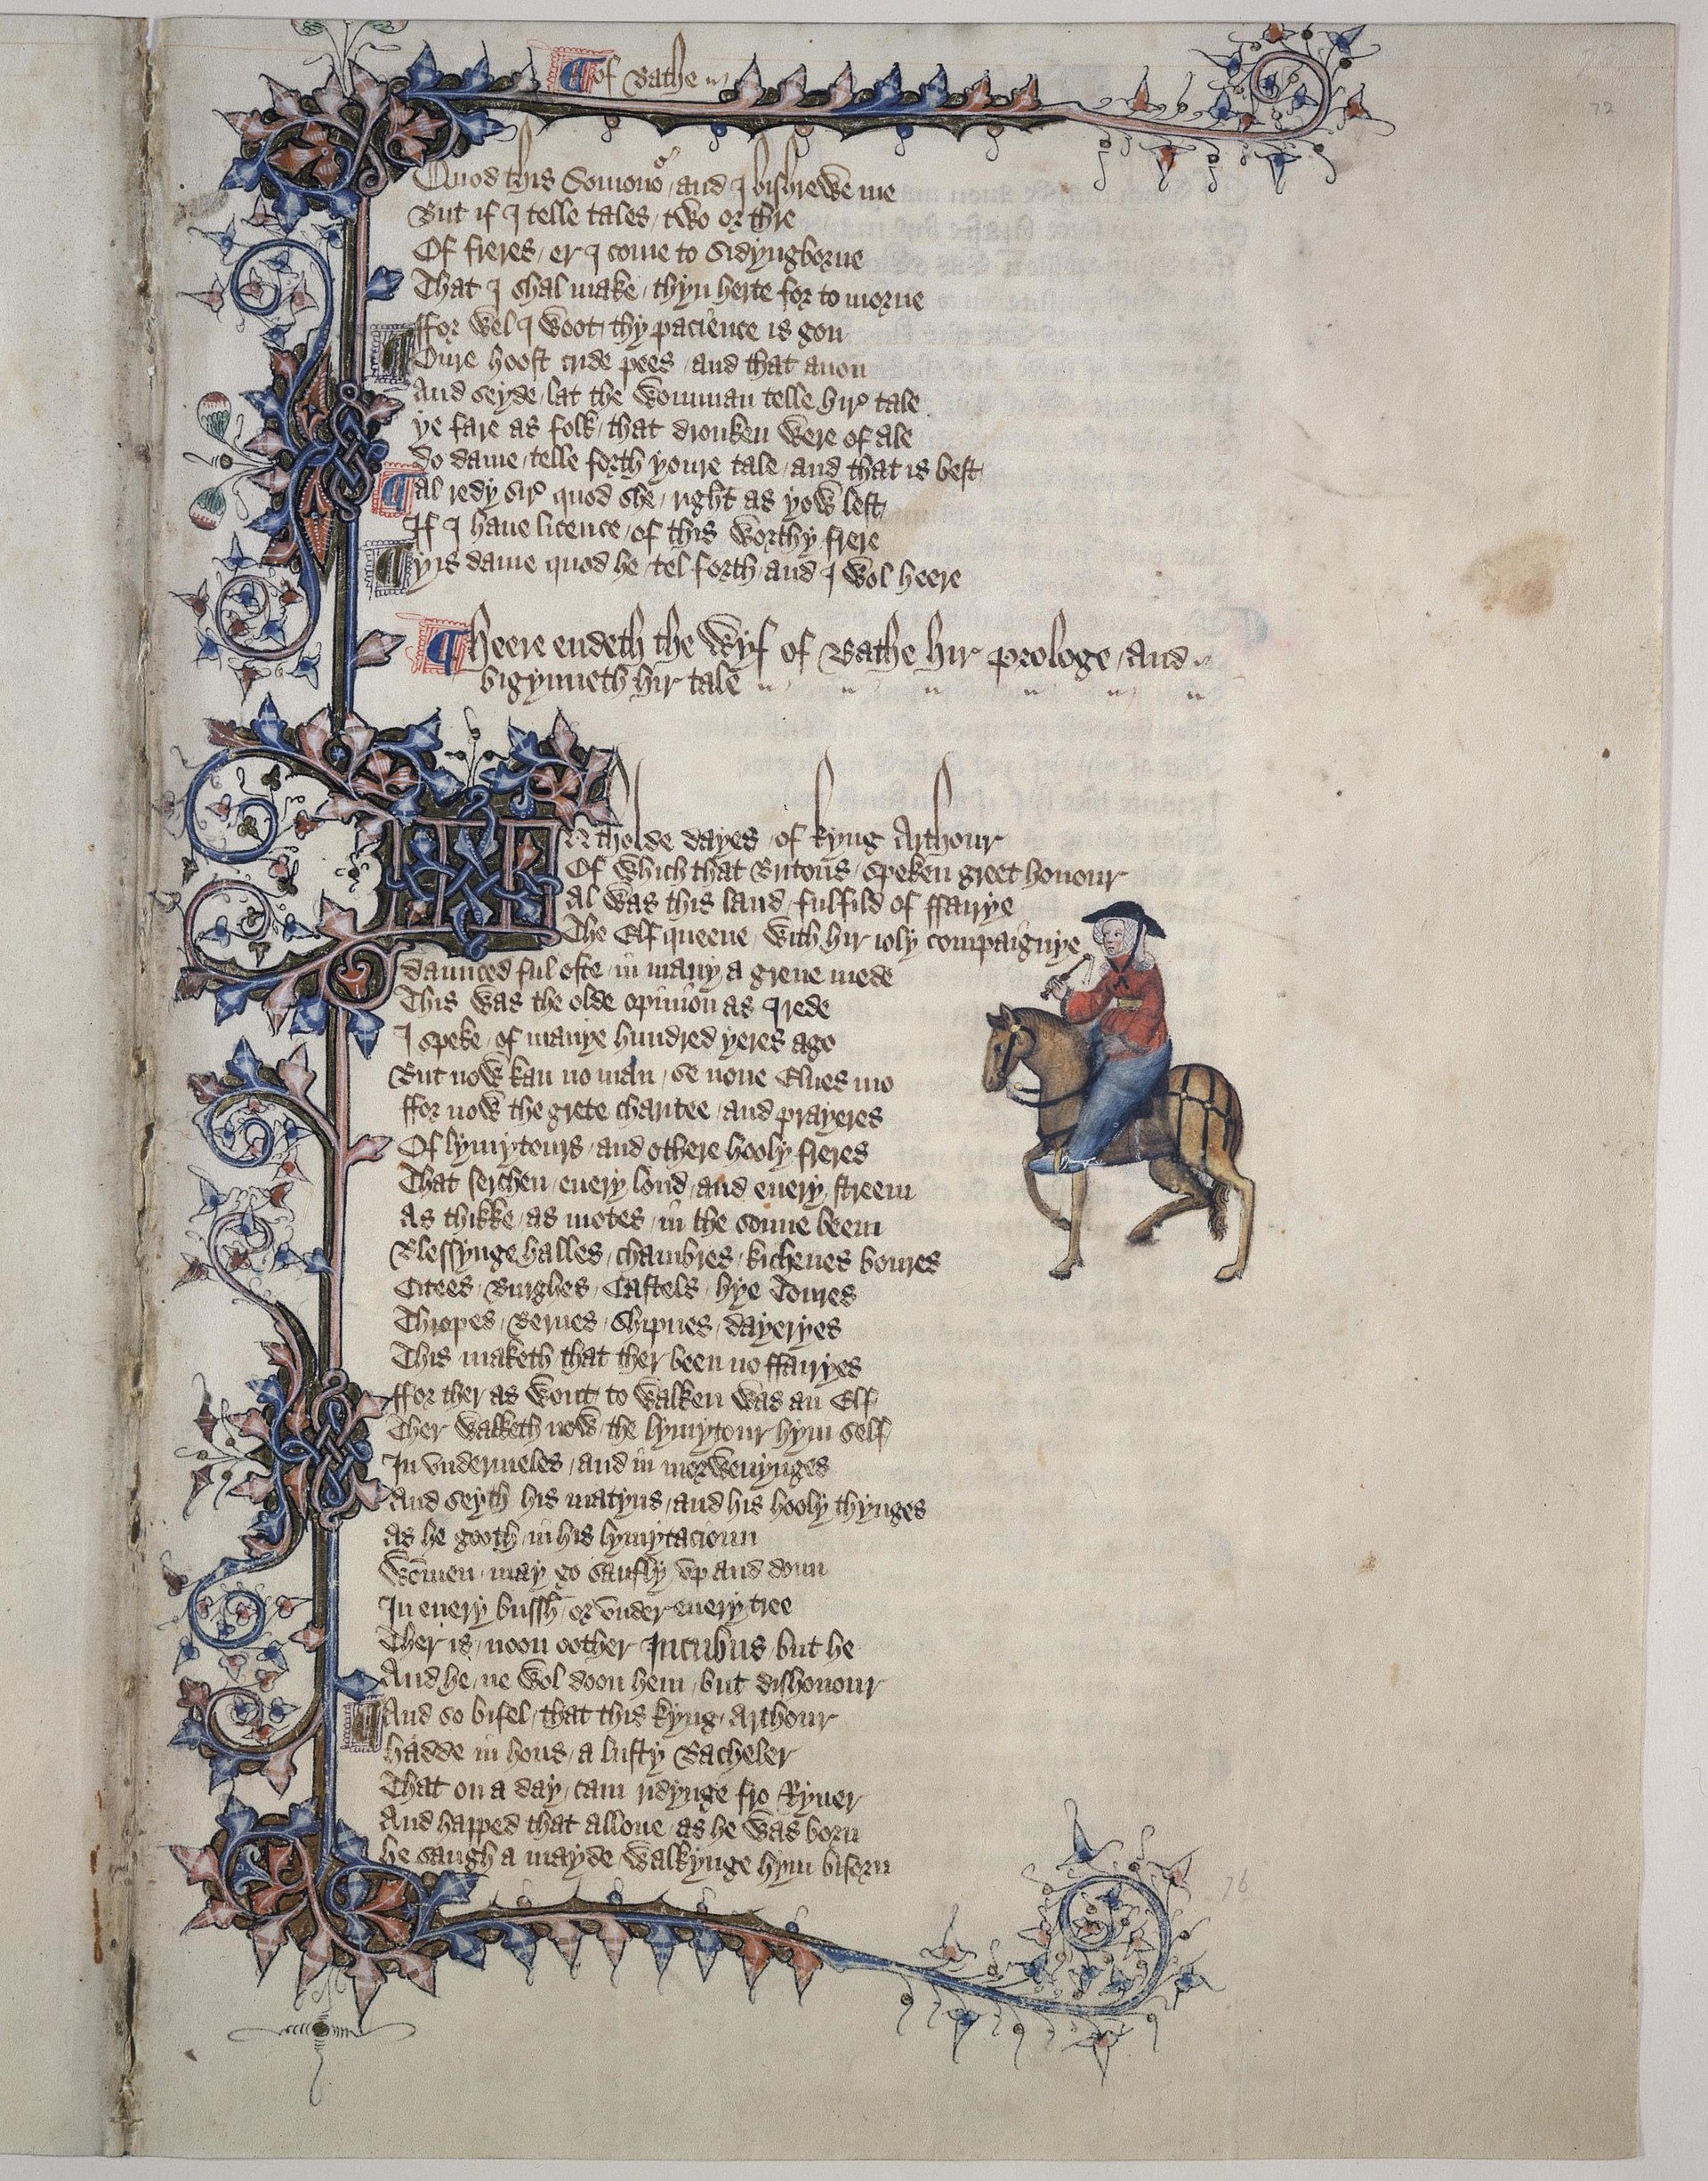 of Bathe
Quod this Somonor / and I bishrewe me
But if I telle tales / two or thre
Of freres / er I come to Sidyngborne
That I shal make / thyn herte for to morne
ffor wel I woot / thy pacience is gon
Oure hoost cride pees / and that anon
And seyde / lat the womman telle hir tale
ye fare as folk / that dronken were of ale
Do dame / telle forth youre tale / and that is best
Al redy sire quod she / right as yow lest
If I haue licence / of this worthy frere
yis dame quod he / tel forth and I wol heere
heere endeth the Wyf of Bathe hir prologe / and
bigynneth hir tale
IN tholde dayes / of kyng Arthour
Of which that Britons / speken greet honour
Al was this land / fulfild of ffairye
The Elf queene / with hir ioly compaignye
Daunced ful ofte / in many a grene mede
This was the olde opinion as I rede
I speke / of manye hundred yeres ago
But now kan no man / se none Elues mo
ffor now the grete charitee / and prayeres
Of lymytours / and othere hooly freres
That serchen / euery lond / and euery streem
As thikke / as motes / in the sonne beem
Blessynge halles / chambres / kichenes boures
Citees / Burghes / Castels / hye Toures
Thropes / Bernes / Shipnes / dayeryes
This maketh that ther been no ffairyes
ffor ther as wont to walken was an Elf
Ther walketh now / the lymytour hym self
In vndermeles / and in morwenynges
And seyth his matyns / and his hooly thynges
As he gooth / in his lymytacioun
Wommen / may go saufly vp and doun
In euery bussh / or vnder euery tree
Ther is / noon oother Incubus but he
And he / ne wol doon hem / but dishonour
And so bifel / that this kyng Arthour
hadde in hous / a lusty Bacheler
That on a day / cam ridynge fro Ryuer
And happed that allone / as he was born
he saugh a mayde / walkynge hym biforn
72
76